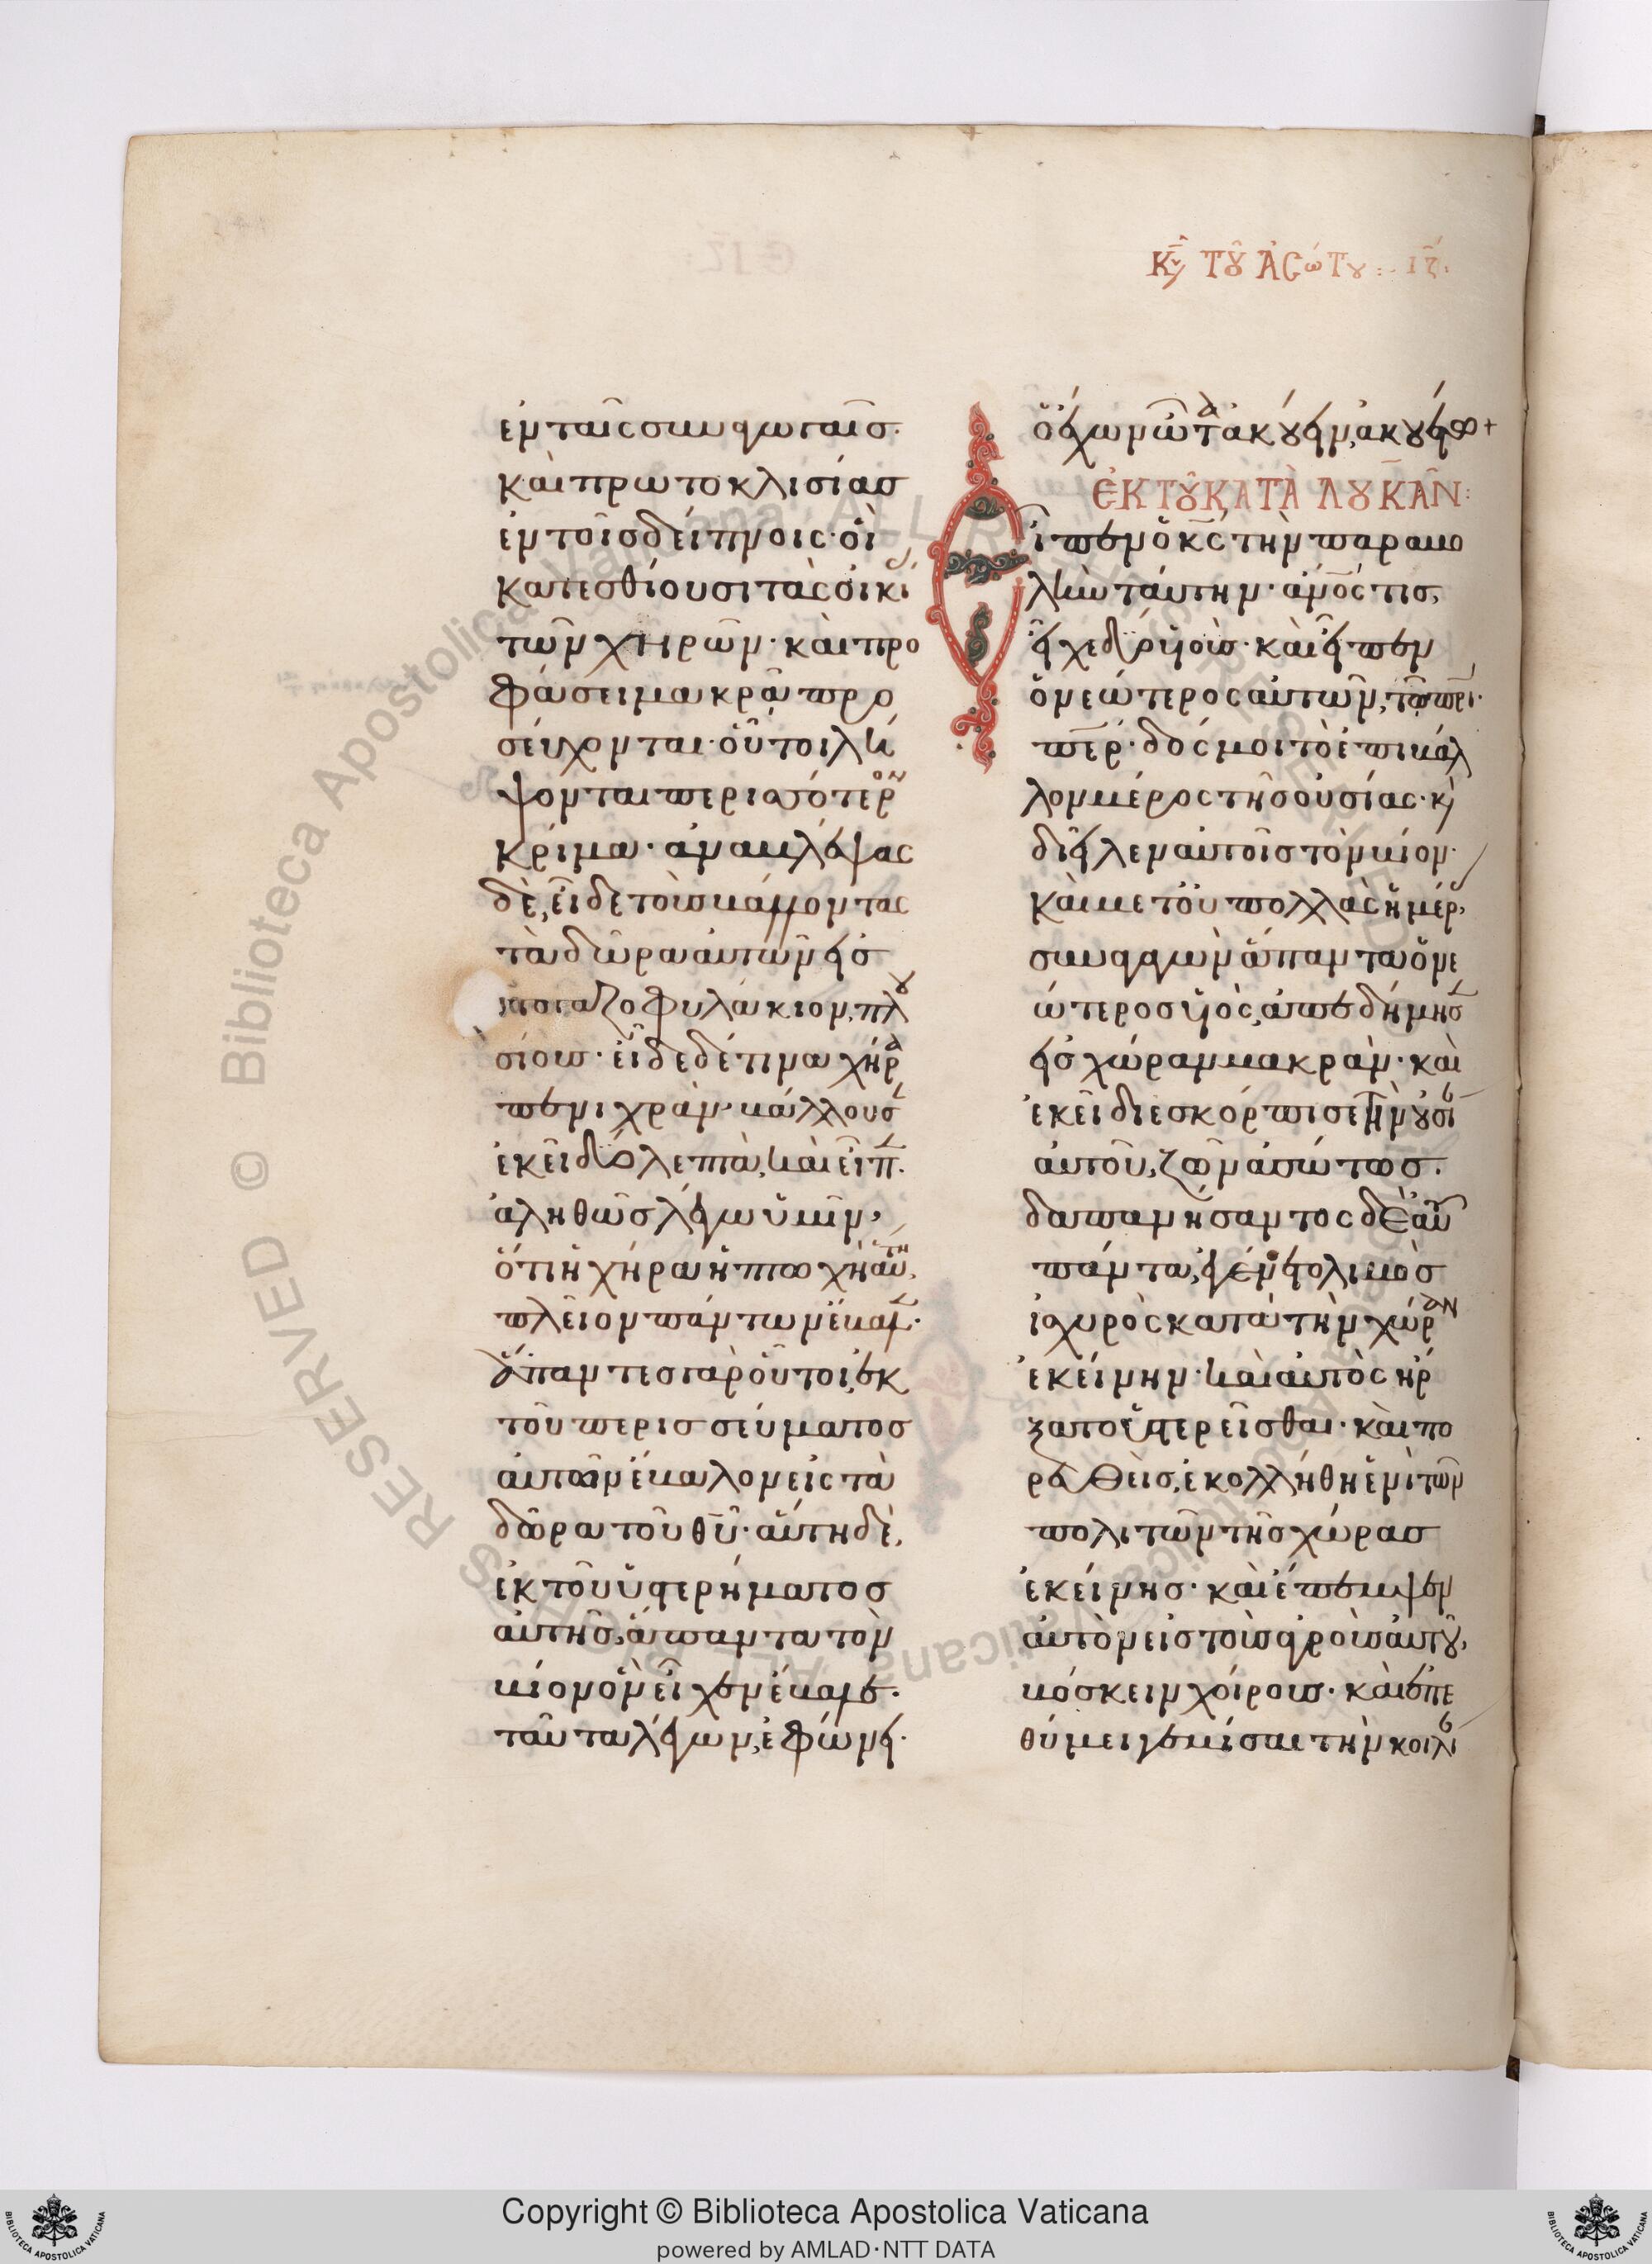 Κυ Τȣ ἈϹώΤȣ : ΙΖ
ἐν ταῖς συναγωγαῖς·
καὶ πρωτοκλισίας
ἐν τοῖς δείπνοις· οἱ
κατεσθίουσι τὰς οἰκί
τῶν χηρῶν· καὶ προ
φάσει μακρᾷ προ
σεύχονται· οὗτοι λή
ψονται περισσότερον
κρίμα· ἀναβλέψας
δὲ, εἶδε τοὺς βάλλοντας
τὰ δῶρα αὐτῶν εἰς
γαζοφυλάκιον, πλου
σίους· εἶδε δέ τινα χήρα
πενιχρὰν βάλλουσ
ἐκεῖ δύο λεπτὰ, καὶ εἶπ·
ἀληθῶς λέγω ὑμῖν,
ὅτι ἡ χήρα ἡ πτωχὴ αὕτη,
πλεῖον πάντων ἔβαλ·
ἅπαντες γὰρ οὗτοι, ἐκ
τοῦ περισσεύματος
αὐτῶν ἔβαλον εἰς τὰ
δῶρα τοῦ θυ· αὕτη δὲ,
ἐκ τοῦ ὑστερήματος
αὐτῆς, ἅπαντα τὸν
βίον ὃν εἶχεν ἔβαλε·
ταῦτα λέγων, ἐφώνει·
ὁ ἔχων ὦτα ἀκούειν, ἀκουέτω +
ἘΚ ΤΟΥ ΚΑΤᾺ ΛΟΥΚΑΝ :
Εἶπεν ὁ κς τὴν παραβο
λὴν ταύτην· ἄνος τις,
εἶχε δύο υἱούς· καὶ εἶπεν
ὁ νεώτερος αὐτῶν, τῶ πρι·
περ· δός μοι τὸ ἐπιβάλ
λον μέρος τῆς οὐσίας· καὶ
διεῖλεν αὐτοῖς τὸν βίον·
καὶ μετ' οὐ πολλὰς ἡμέρ,
συναγαγὼν ἅπαντα ὁ νε
ώτερος υἱὸς, ἀπεδήμησ
εἰς χώραν μακράν· καὶ
ἐκεῖ διεσκόρπισε τὴν οὐσί
αὐτοῦ, ζῶν ἀσώτως.
δαπανήσαντος δὲ αὐτοῦ
πάντα, ἐγένετο λιμὸς
ἰσχυρὸς κατὰ τὴν χώραν
ἐκείνην· καὶ αὐτὸς ἤρ
ξατο ὑστερεῖσθαι· καὶ πο
ρευθεὶς, ἐκολλήθη ἑνὶ τῶν
πολιτῶν τῆς χώρας
ἐκείνης· καὶ ἔπεμψεν
αὐτὸν εἰς τοὺς ἀγροὺς αὐτοῦ,
βόσκειν χοίρους· καὶ ἐπε
θύμει γεμίσαι τὴν κοιλί
Copyright © Biblioteca Apostolica Vaticana
powered by AMLAD·NTT DATA